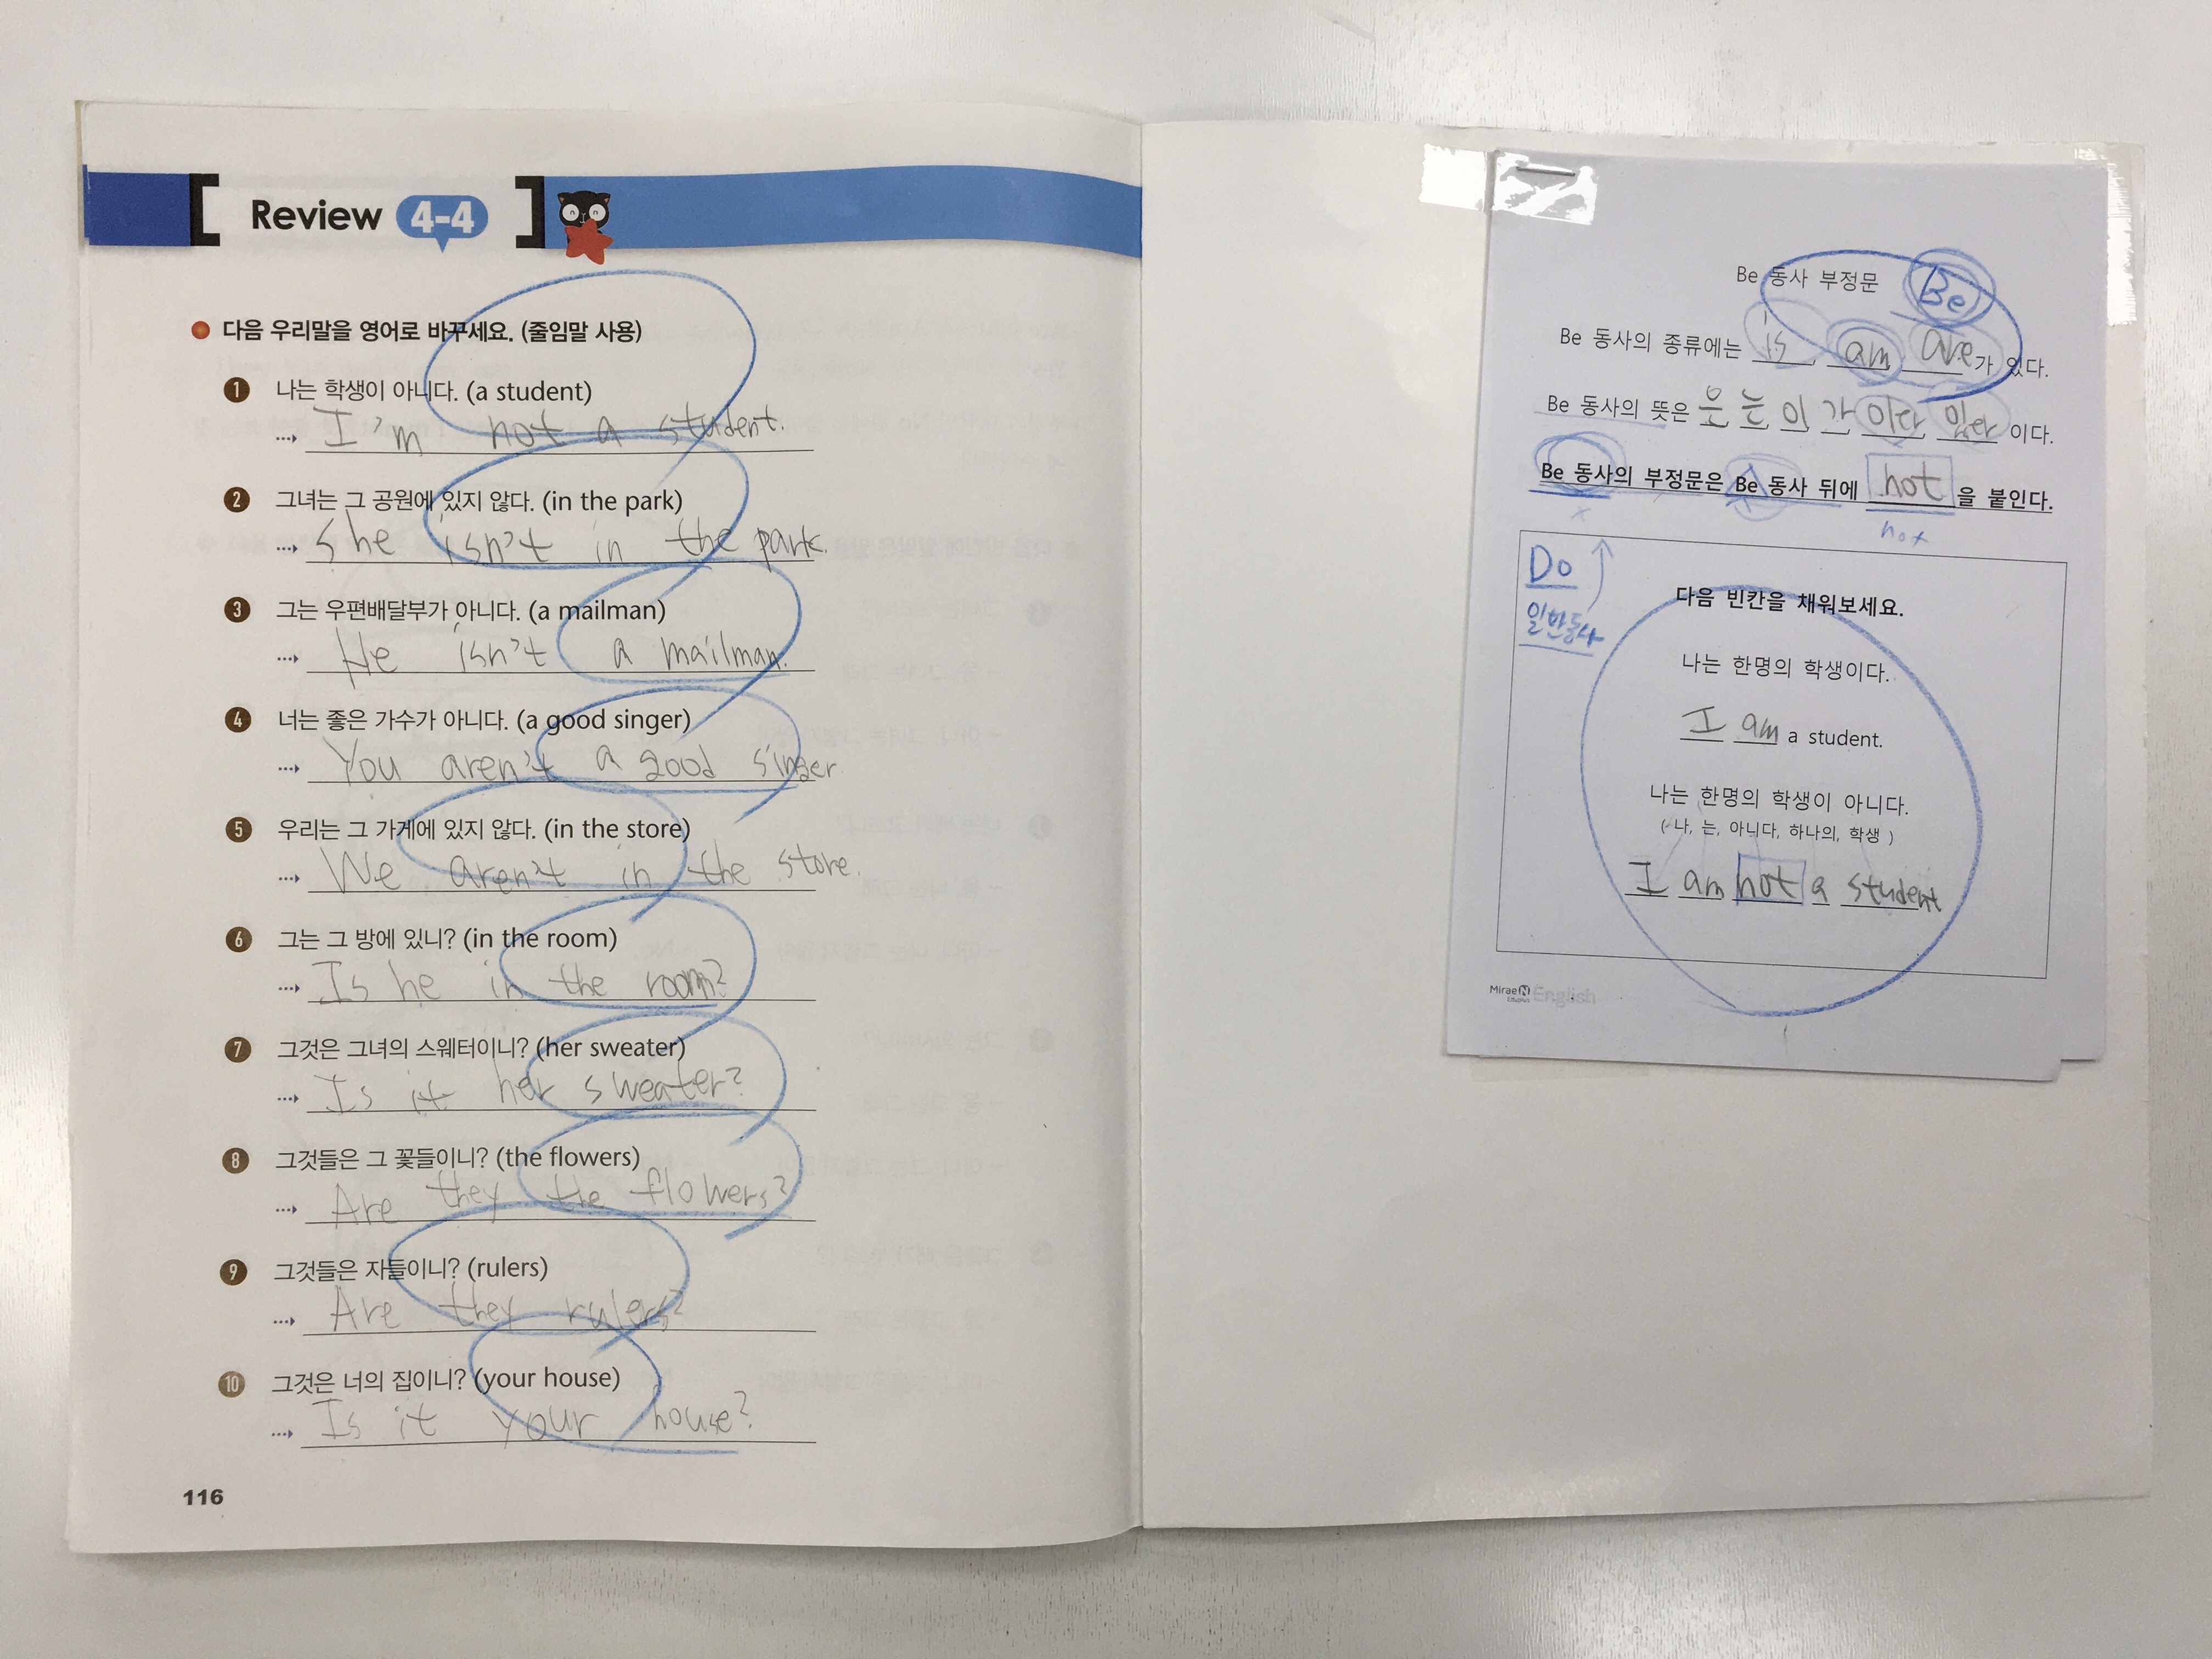 Review 4-4
다음 우리말을 영어로 바꾸세요. (줄임말 사용)
1 나는 학생이 아니다. (a student)
I'm not a student.
2 그녀는 그 공원에 있지 않다. (in the park)
She isn't in the park.
3 그는 우편배달부가 아니다. (a mailman)
He isn't a mailman.
4 너는 좋은 가수가 아니다. (a good singer)
You aren't a good singer
5 우리는 그 가게에 있지 않다. (in the store)
We aren't in the store.
6 그는 그 방에 있니? (in the room)
Is he in the room?
7 그것은 그녀의 스웨터이니? (her sweater)
Is it her sweater?
8 그것들은 그 꽃들이니? (the flowers)
Are they the flowers?
9 그것들은 자들이니? (rulers)
Are they rulers?
10 그것은 너의 집이니? (your house)
Is it your house?
116
Be 동사 부정문 Be
Be 동사의 종류에는 is, am, are가 있다.
Be 동사의 뜻은 은 는 이 가 이다 있다 이다.
Be 동사의 부정문은 Be 동사 뒤에 not 을 붙인다.
not
Do
일반동사
다음 빈칸을 채워보세요.
나는 한명의 학생이다.
I am a student.
나는 한명의 학생이 아니다.
( 나, 는, 아니다, 하나의, 학생 )
I am not a student
Mirae N English
Eduplus